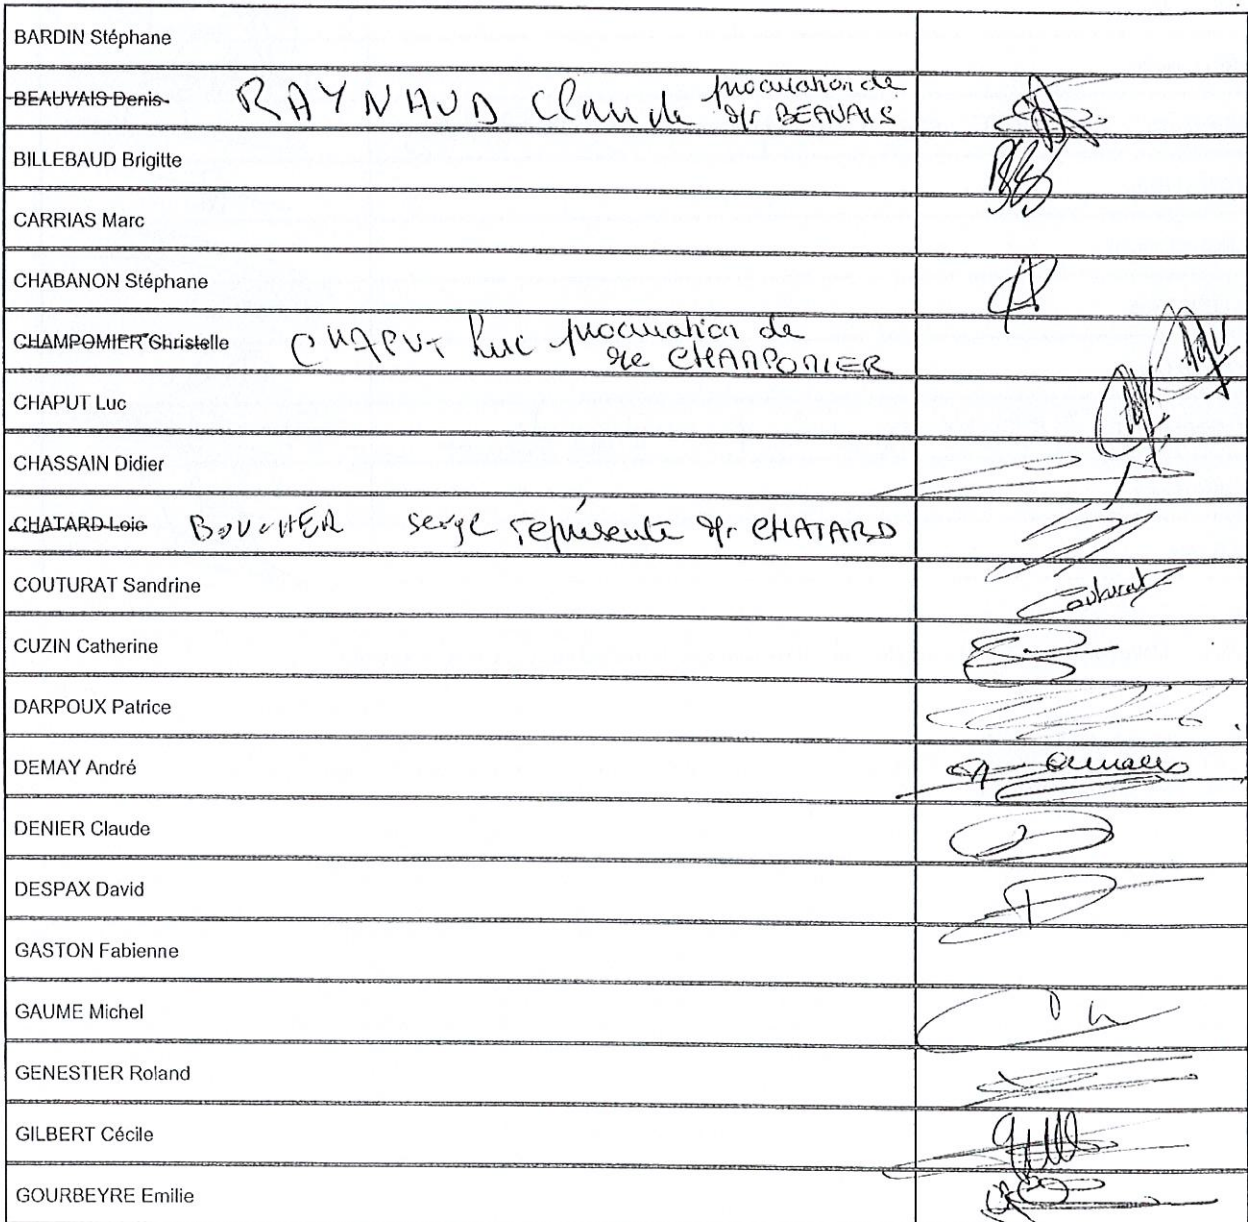 BARDIN Stéphane
BEAUVAIS Denis RAYNAUD Claude procuration de Mr BEAUVAIS
BILLEBAUD Brigitte
CARRIAS Marc
CHABANON Stéphane
CHAMPOMIER Christelle CHAPUT Luc procuration de Me CHAMPOMIER
CHAPUT Luc
CHASSAIN Didier
CHATARD Loic BOUCHER Serge représente Mr CHATARD
COUTURAT Sandrine Couturat
CUZIN Catherine
DARPOUX Patrice
DEMAY André
DENIER Claude
DESPAX David
GASTON Fabienne
GAUME Michel
GENESTIER Roland
GILBERT Cécile
GOURBEYRE Emilie